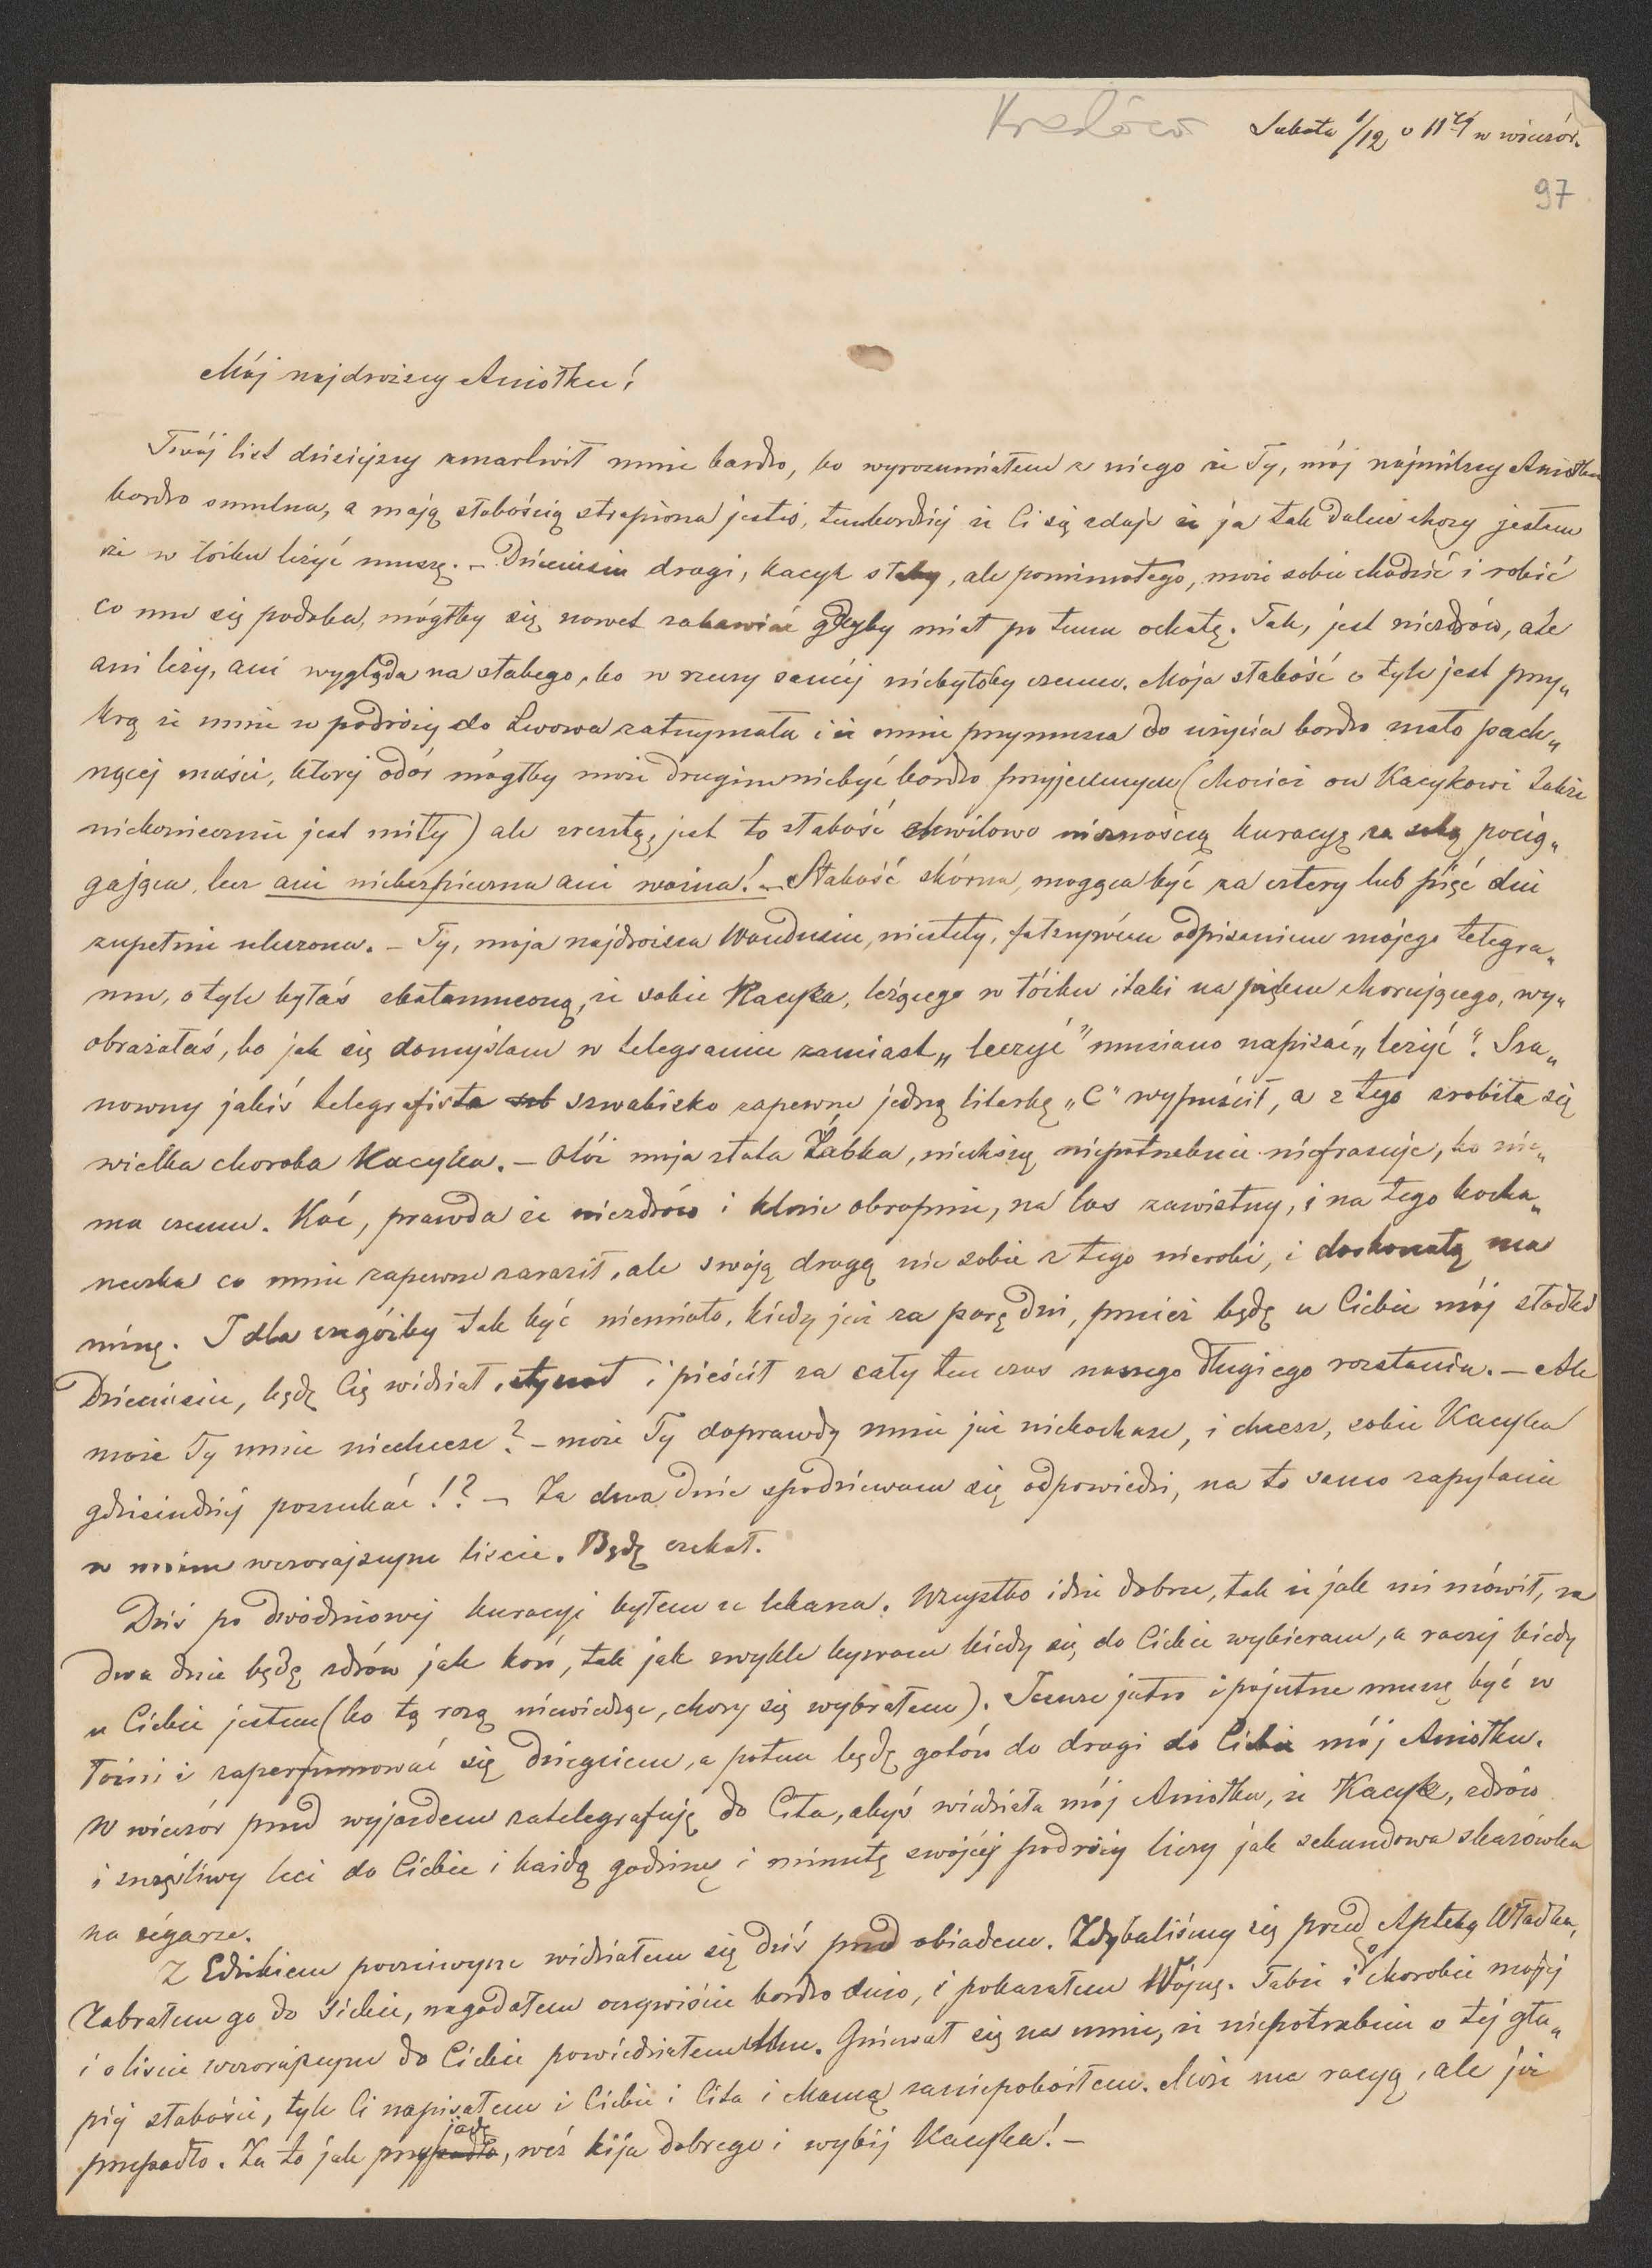 Kraków Sobota 1/12 o 11 w wieczór.
97
Mój najdroższy Aniołku!
Twój list dzisiejszy zmartwił mnie bardzo, bo wyrozumiałem z niego że Ty, mój najmilszy Aniołku
bardzo smutna, a moją słabością strapiona jesteś, tembardziej że Ci się zdaje że ja tak dalece chory jestem
że w łóżku leżyć muszę. – Dzieciusiu drogi, Kacyk słaby, ale pomimotego, może sobie chodzić i robić
co mu się podoba, mógłby się nawet zabawiać gdyby miał po temu ochotę. Tak, jest niezdrów, ale
ani leży, ani wygląda na słabego, bo w rzeczy saméj niebyłoby czemu. Moja słabość o tyle jest przy„
krą że mnie w podróży do Lwowa zatrzymała i że mnie przymusza do użycia bardzo mało pach„
nącej maści, której odór mógłby może drugim niebyć bardzo przyjemnym (chociaż on Kacykowi także
niekoniecznie jest miły) ale zresztą, jest to słabość chwilowo nieznośną kuracyę za sobą pocią„
gająca, lecz ani niebezpieczna ani ważna! – Słabość skórna, mogąca być za cztery lub pięć dni
zupełnie uleczona. – Ty, moja najdroższa Wandusiu, niestety, fałszywém odpisaniem mojego telegra„
mu, o tyle byłaś zbałamuconą, że sobie Kacyka, leżącego w łóżku i taki na pięknem chorującego, wy„
obrażałaś, bo jak się domyślam w telegramie zamiast „leczyć" musiano napisać „leżyć". Sza„
nowny jakiś telegrafista szwabisko zapewne jedną literkę „C" wypuścił, a z tego zrobiła się
wielka choroba Kacyka. – Otóż moja złota Żabka, niechsię niepotrzebnie niefrasuje, bo nie„
ma czemu. Kać, prawda że niezdrów i klnie okropnie, na los zawistny, i na tego kocha„
neczka co mnie zapewne zaraził, ale swoją drogą nic sobie z tego nierobi, i doskonałą ma
minę. I dla czegóżby tak być niemiało, kiedy już za parę dni, przecież będę u Ciebie mój słodki
Dzieciusiu, będę Cię widział, i pieścił za cały ten czas naszego długiego rozstania. – Ale
może Ty mnie niechcesz? – może Ty doprawdy mnie już niekochasz, i chcesz, sobie Kacyka
gdzieindziej poszukać!? – Za dwa dnie spodziewam się odpowiedzi, na to samo zapytanie
w moim wczorajszym liście. Będę czekał.
Dziś po dwódniowej kuracyi byłem u lekarza. Wszystko idzie dobrze, tak że jak mi mówił, za
dwa dnie będę zdrów jak koń, tak jak zwykle bywam kiedy się do Ciebie wybieram, a raczej kiedy
u Ciebie jestem (bo tą razą niewiedząc, chory się wybrałem). Jeszcze jutro i pojutrze muszę być w
łaźni i zaperfumować się dziegciem, a potem będę gotów do drogi do Ciebie mój Aniołku.
W wieczór przed wyjazdem zatelegrafuję do Cita, abyś wiedziała mój Aniołku, że Kacyk, zdrów
i szczęśliwy leci do Ciebie i każdą godzinę i minutę swojéj podróży liczy jak sekundowa skazówka
na zégarze.
Z Edzikiem poczciwym widziałem się dziś przed obiadem. Zdybaliśmy się przed Apteką Władka,
Zabrałem go do siebie, nagadałem oczywiście bardzo dużo, i pokazałem Wójnę. Także i o chorobie mojéj
i o liście wczorajszym do Ciebie powiedziałem Mu. Gniewał się na mnie, że niepotrzebnie o téj głu„
piéj słabości, tyle Ci napisałem i Ciebie i Cita i Mamą zaniepokoiłem. Może ma racyę, ale już
przepadło. Za to jak przyjadę, weź kija dobrego i wybij Kacyka! –